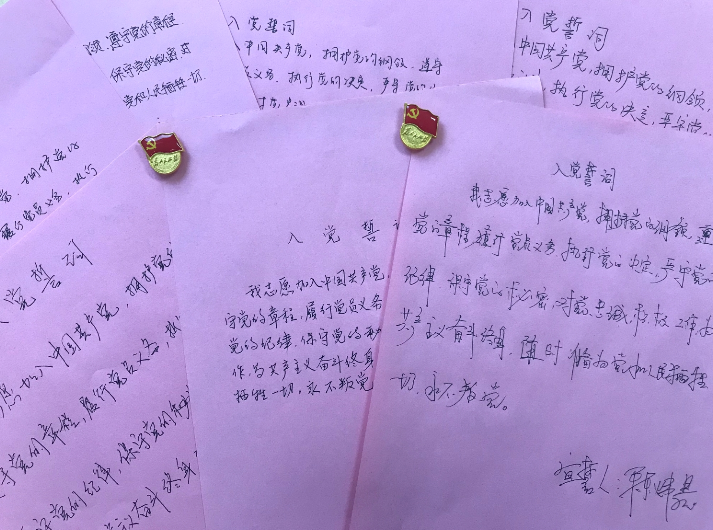 遵守党的章程
保守党的秘密,对
党和人民牺牲一切.
入党誓词
中国共产党,拥护党的纲领、遵守
义务、执行党的决定,严守党的
入党誓词
中国共产党,拥护党的纲领,
执行党的决定,严守党
拥护党的
履行党员义务,执行
党誓词
愿加入中国共产党,拥护党
守党的章程,履行党员义务,
党的纪律,保守党的秘
主义奋斗终身
入党誓
我志愿加入中国共产党
守党的章程,履行党员义务
党的纪律,保守党的秘
作为共产主义奋斗终身
牺牲一切,永不叛党
入党誓词
我志愿加入中国共产党,拥护党的纲领,遵
党的章程,履行党员义务,执行党的决定,严守党
纪律,保守党的秘密,对党忠诚,积极工作,
共产主义奋斗终身,随时准备为党和人民牺牲
一切,永不叛党。
宣誓人: